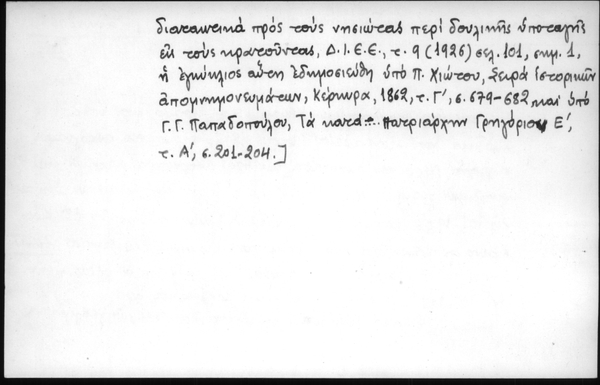 διατακτικά πρός τούς νησιώτας περί δουλικῆς ὑποταγῆς
εἰς τούς κρατοῦντας, Δ.Ι.Ε.Ε., τ. 9 (1926) σελ. 101, σημ. 1,
ἡ ἐγκύκλιος αὕτη ἐδημοσιεύθη ὑπό Π. Χιώτου, Σειρά ἱστορικῶν
ἀπομνημονευμάτων, Κέρκυρα, 1862, τ. Γ', σ. 679-682 καί ὑπό
Γ. Γ. Παπαδοπούλου, Τά κατά... Πατριάρχην Γρηγόριον Ε',
τ. Α', σ. 201-204.]